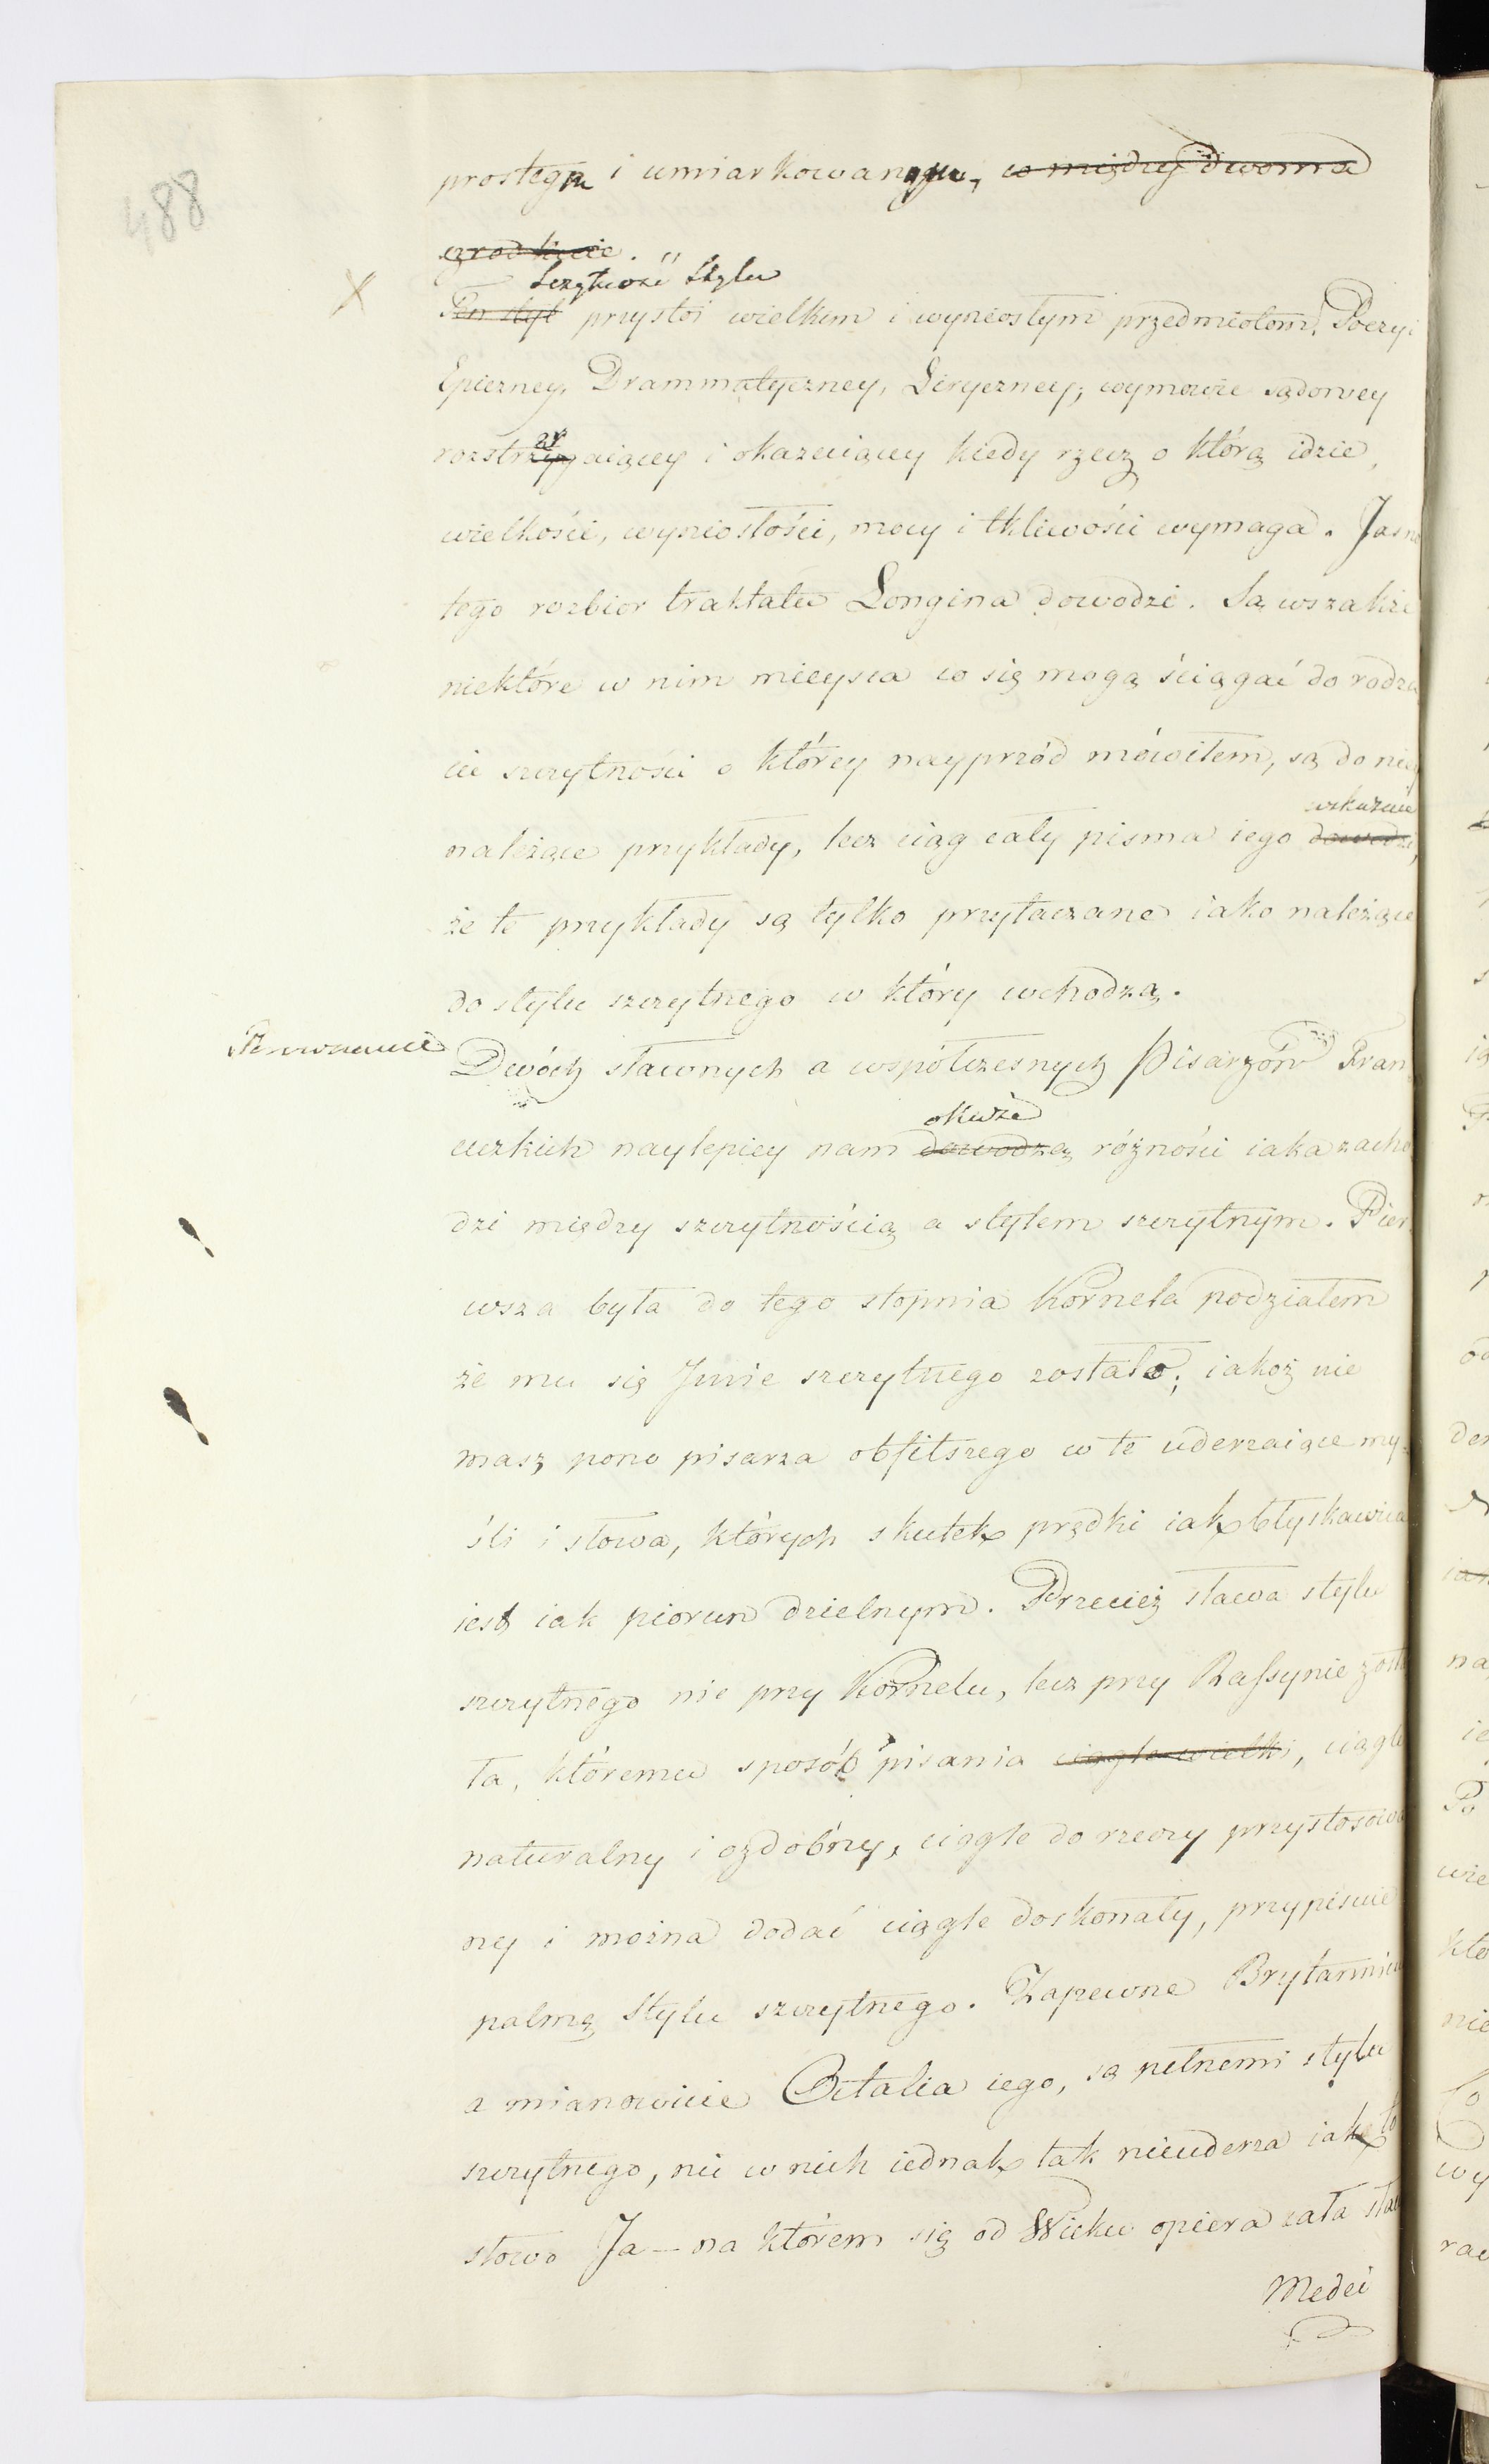 488
prostego i umiarkowanego, co między dwoma
czrodkiecie.
Szczytność Stylu
X Ten styl przystoi wielkim i wyniosłym przedmiotom, Poezyi
Epiczney, Drammatyczney, Liryczney, wymowie sądowey
rozstrząsaiącey i okazuiącey kiedy rzecz o którą idzie,
wielkości, wyniosłości, mocy i tkliwości wymaga. Jasno
tego rozbior traktatu Longina dowodzi. Są wszakże
niektóre w nim mieysca co się mogą ściągać do rodza
iu szczytności o którey nayprzód mówiłem, są do niey
wskazuie
należące przykłady, lecz ciąg cały pisma iego dowodzi,
że te przykłady są tylko przytaczane iako należące
do stylu szczytnego w który wchodzą.
Porownanie Dwóch sławnych a współczesnych Pisarzów Fran
okaże
cuzkich naylepiey nam dowodzą różności iaka zacho
dzi między szczytnością a stylem szczytnym. Pier
wsza była do tego stopnia Kornela podziałem
że mu się Jmie szczytnego zostało; iakoż nie
masz pono pisarza obfitszego w te uderzaiące my
śli i słowa, których skutek prędki iak błyskawica
iest iak piorun dzielnym. Przecież sława stylu
szczytnego nie przy Kornelu, lecz przy Rassynie zosta
ła, któremu sposób pisania ciągle wielki, ciągle
naturalny i ozdobny, ciągle do rzeczy przystosowa
ny i można dodać ciągle doskonały, przypisuie
palmę Stylu szczytnego. Zapewne Brytannik
a mianowicie Atalia iego, są pełnemi stylu
szczytnego, nic w nich iednak tak nieuderza iak to
słowo Ja — na którem się od Wieku opiera cała sława
Medei